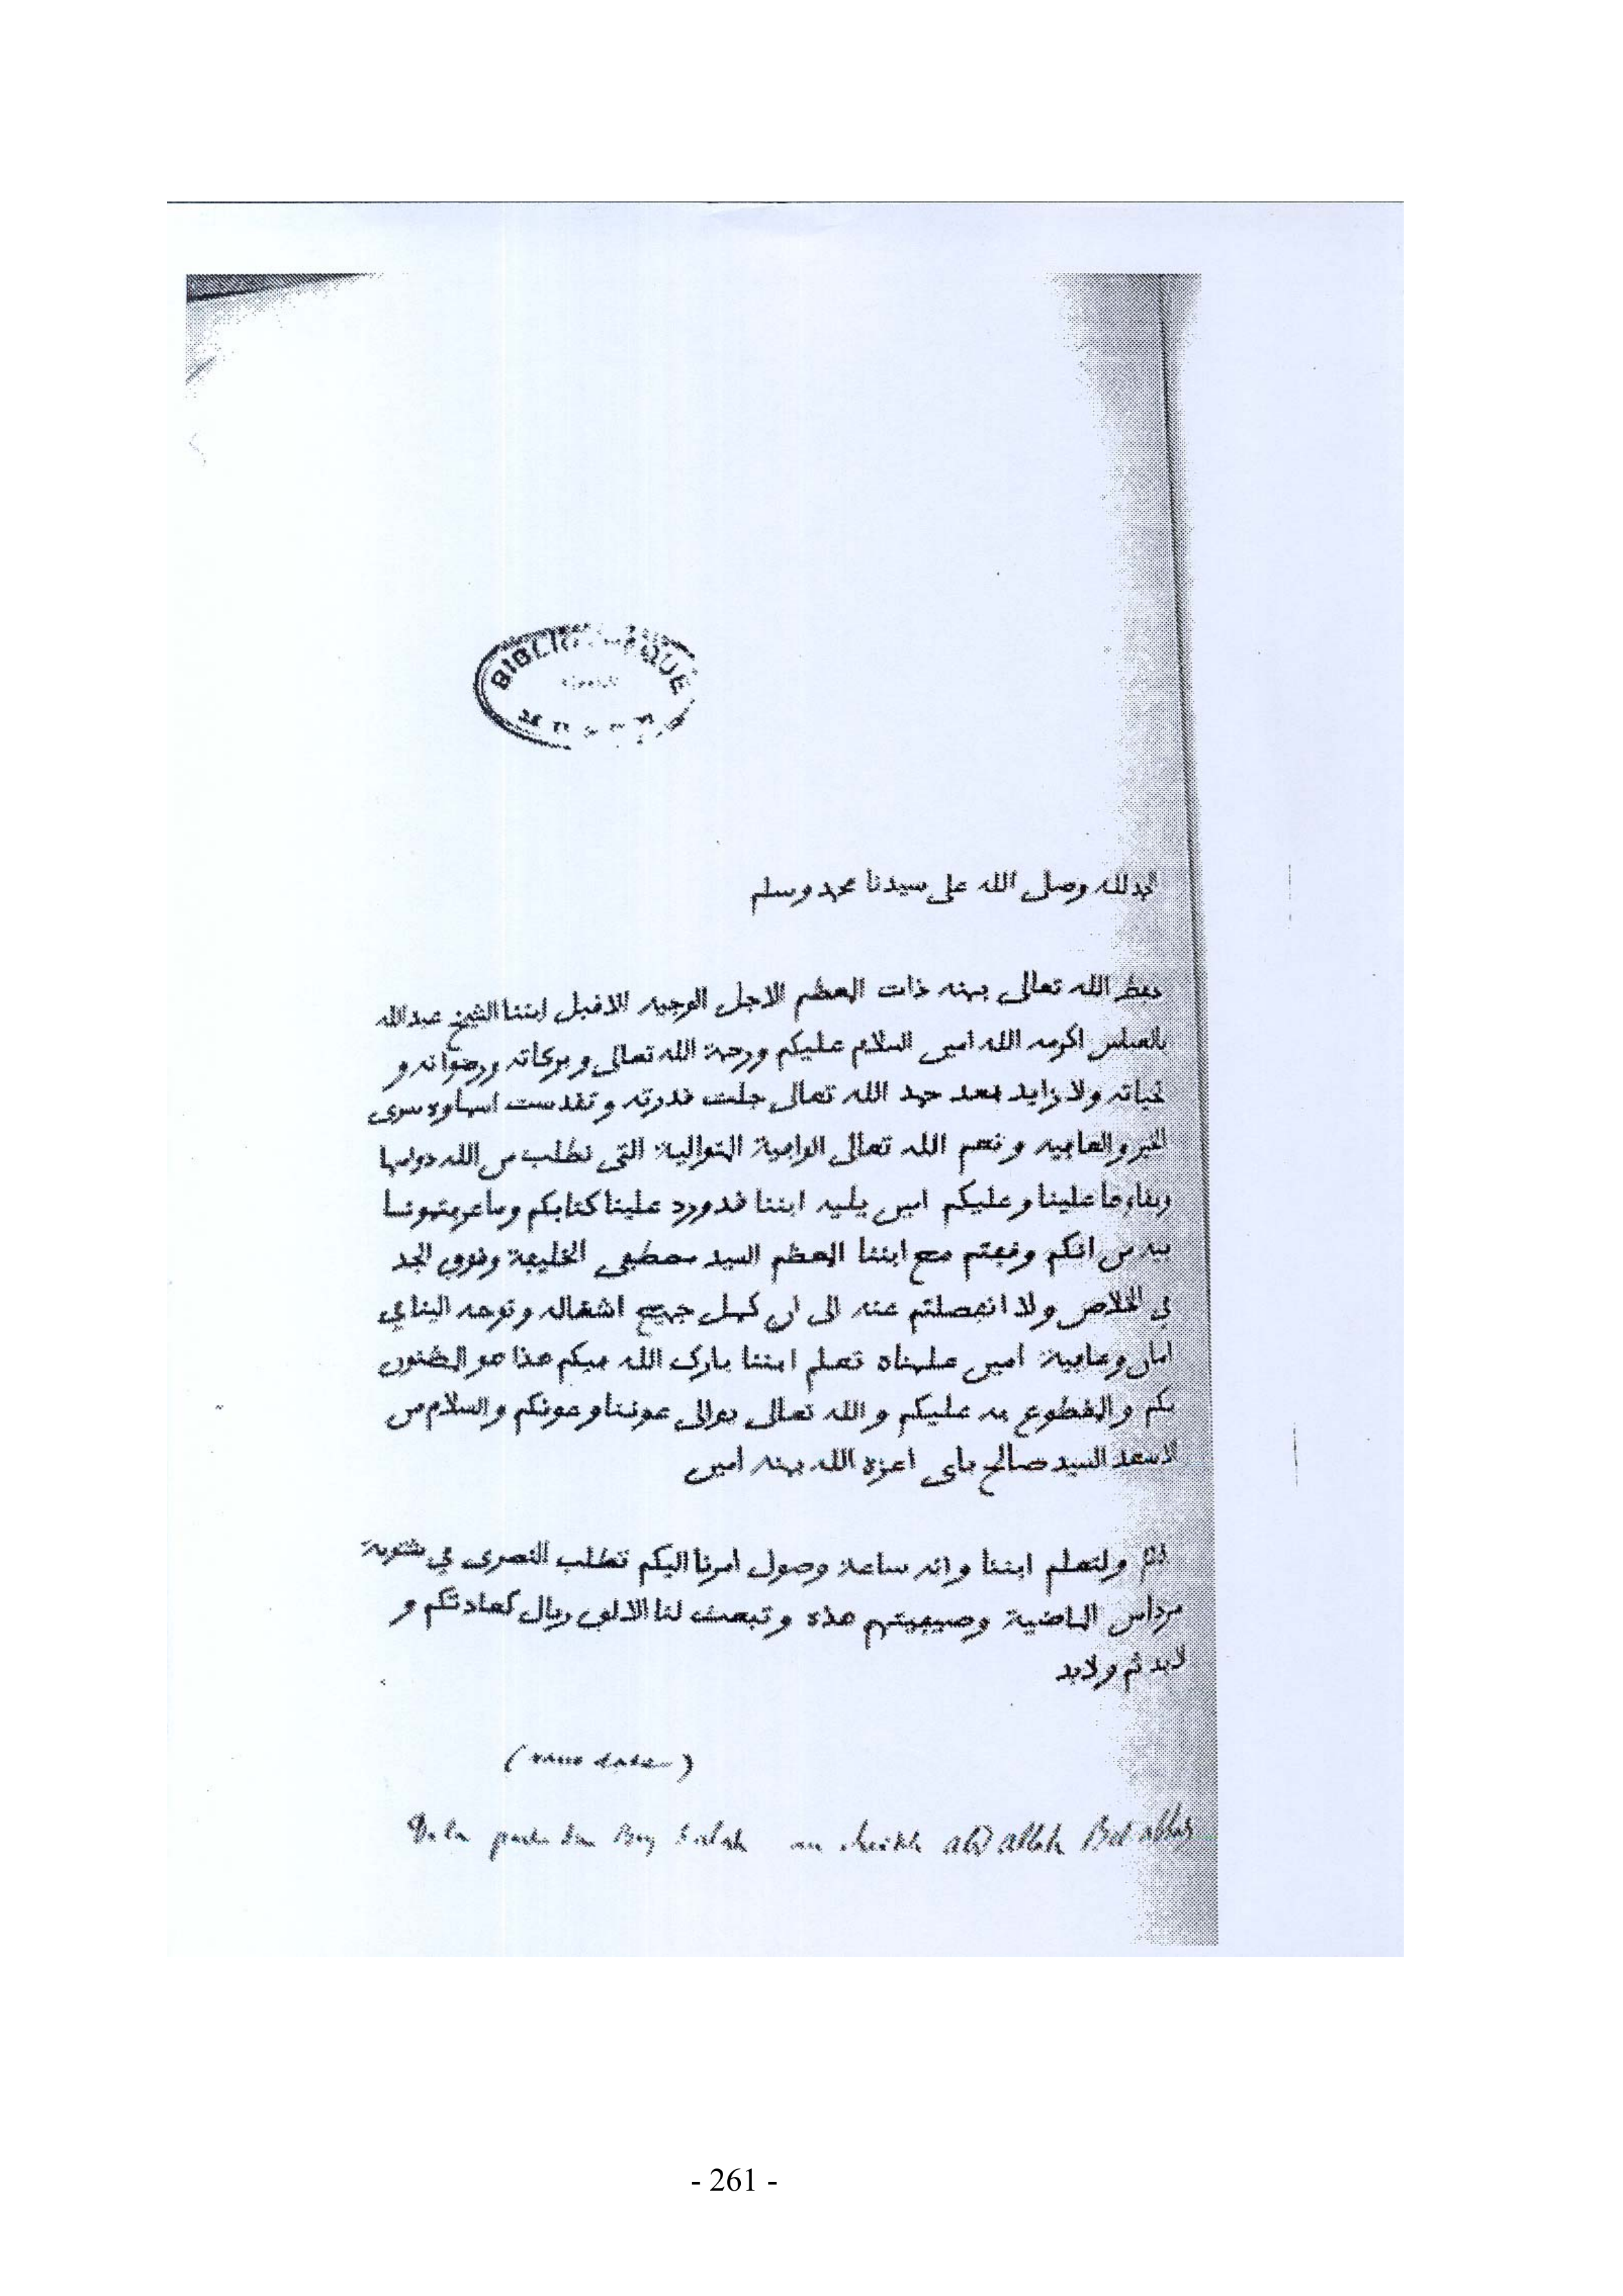 BIBLIOTHEQUE
الحمد لله وصلى الله على سيدنا محمد وسلم
حفظ الله تعالى بمنه ذات المعظم الاجل الوجيه الافبل ابننا الشيخ عبد الله
بالعباس اكرمه الله امين السلام عليكم ورحمة الله تعالى وبركاته ورضوانه و
تحياته ولا زايد بعد حمد الله تعالى جلت قدرته وتقدست اسماوه سوى
الخير والعافيه ونعم الله تعالى الوافية المتوالية التى نطلب من الله دوامها
وبفاوها علينا وعليكم امين يليه ابننا قد ورد علينا كتابكم وما عرفتمونا
به من انكم وقفتم مع ابننا المعظم السيد مصطفى الخليفة وقوف الجد
في الخلاص ولا انفصلتم عنه الى ان كمل جميع اشغاله وتوجه الينا في
امان وعافية امين علمناه تعلم ابننا بارك الله فيكم هذا هو المظنون
بكم والمقطوع به عليكم والله تعالى يوالى عوننا وعونكم والسلام من
الاسعد السيد صالح باى اعزه الله بمنه امين
ولتعلم ابننا وانه ساعة وصول امرنا اليكم تطلب النصرى في شتوية
مرداس الماضية وصيفيتهم هذه وتبعث لنا الالف ريال كعادتكم و
لابد ثم ولابد
(sans date)
De la part du Bey Salah au cheikh abd allah Bel abbas
- 261 -